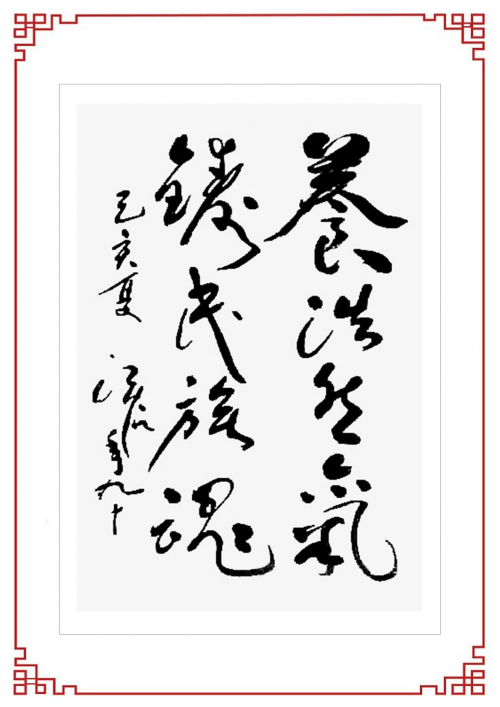 養浩然氣
鑄民族魂
己亥夏
年九十